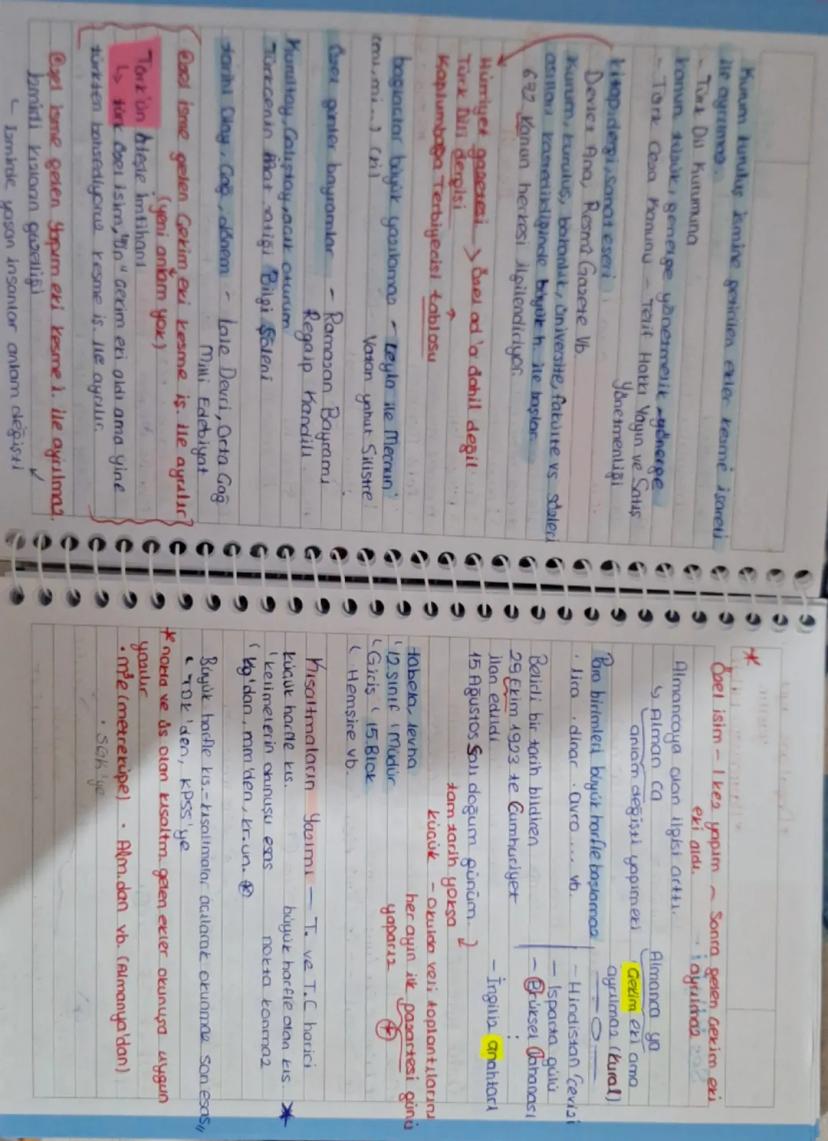 Kurum kuruluş ismine getirilen ekler kesme işareti
ile ayrılmaz.
- Türk Dil Kurumuna
kanun tüzük, generge yönetmelik - yönerge
- Türk Ceza Kanunu - Telif Hakkı Yayın ve Satış
Yönetmenliği
kitap, dergi, sanat eseri
Devlet Ana, Resmi Gazete vb.
Kurum, kuruluş, bakanlık, üniversite, fakülte vs sözleri
asılları kasredildiğinde büyük h. ile başlar.
692 Kanun herkesi ilgilendiriyor.
Hürriyet gazetesi → özel ad'a dahil değil
Türk Dili dergisi
Kaplumbağa Terbiyecisi tablosu
bağlaçlar büyük yazılamaz - Leyla ile Mecnun
(mı, mi...) (ki) Vatan yahut Silistre
özel günler bayramlar - Ramazan Bayramı
Regaip Kandili
Kurultay, Çalıştay, açık oturum
Türkçenin Matematiği Bilgi Şöleni
tarihi olay, çağ, dönem - Lale Devri, Orta Çağ
Milli Edebiyat
Özel isme gelen Çekim eki kesme iş. ile ayrılır
(yeni anlam yok)
Türk'ün ateşle imtihanı
↳ türk özel isim, "ün" çekim eki aldı ama yine
türkten bahsediyoruz kesme iş. ile ayrılır.
Özel isme gelen Yapım eki kesme i. ile ayrılmaz.
İzmirli kızların güzelliği
↳ izmirde yaşan insanlar anlam değişti
* Özel isim - 1 kez yapım ~ Sonra gelen çekim eki
eki aldı. → ayrılmaz
Almancaya olan ilgisi arttı.
↳ Alman ca Almanca ya
anlam değişti yapım eki Çekim eki ama
ayrılmaz (kural)
Para birimleri büyük harfle başlamaz
. lira . dinar . avro ... vb.
- Hindistan cevizi
- Isparta gülü
- Brüksel lahanası
- İngiliz anahtarı
Belirli bir tarih bildiren
29 Ekim 1923 te Cumhuriyet
ilan edildi
15 Ağustos Salı doğum günüm.
tam tarih yoksa
küçük - okulda veli toplantılarını
her ayın ilk pazartesi günü
yaparız
tabela, levha
12. sınıf Müdür
Giriş 15. Blok
Hemşire vb.
Kısaltmaların Yazımı - T. ve T.C harici
küçük harfle kıs. büyük harfle olan kıs *
kelimelerin okunuşu esas nokta konmaz
kg'dan, mm'den, kr.un.
Büyük harfle kıs. - kısaltmalar açılarak okunmaz son esas,,
TDK'den, KPSS'ye
* nokta ve üs olan kısaltm. gelen ekler okunuşa uygun
yazılır
. m³e (metreküpe) . Alm.dan vb. (Almanya'dan)